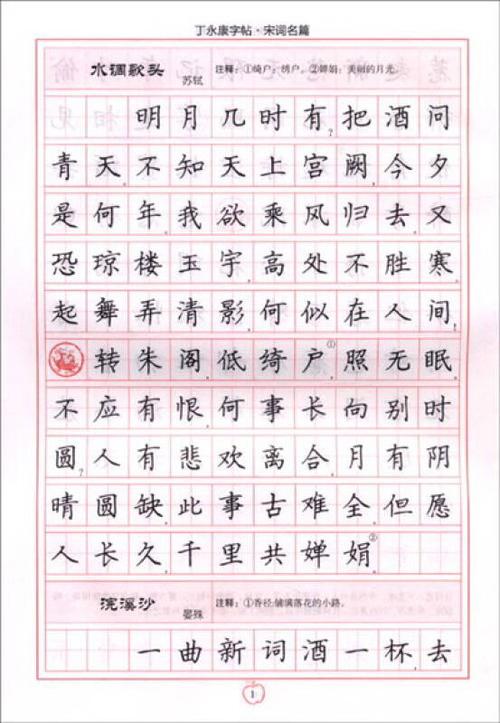 丁永康字帖·宋词名篇
水调歌头 苏轼 注释:①绮户:绣户。②婵娟:美丽的月光。
明月几时有?把酒问
青天。不知天上宫阙,今夕
是何年。我欲乘风归去,又
恐琼楼玉宇,高处不胜寒。
起舞弄清影,何似在人间!
转朱阁,低绮户①,照无眠。
不应有恨,何事长向别时
圆?人有悲欢离合,月有阴
晴圆缺,此事古难全。但愿
人长久,千里共婵娟②。
浣溪沙 晏殊 注释:①香径:铺满落花的小路。
一曲新词酒一杯,去
1